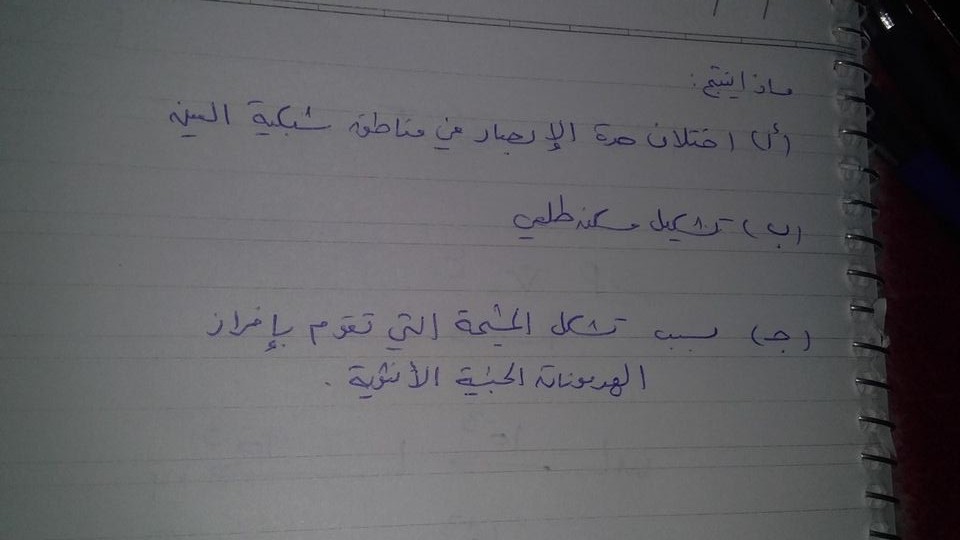 ماذا ينتج:
(أ) اختلاف حدة الإبصار في مناطق شبكية العين
(ب) تشكيل مسكن طلعي
(جـ) بسبب تشكل المشيمة التي تقوم بإفراز
الهرمونات الجنسية الأنثوية .